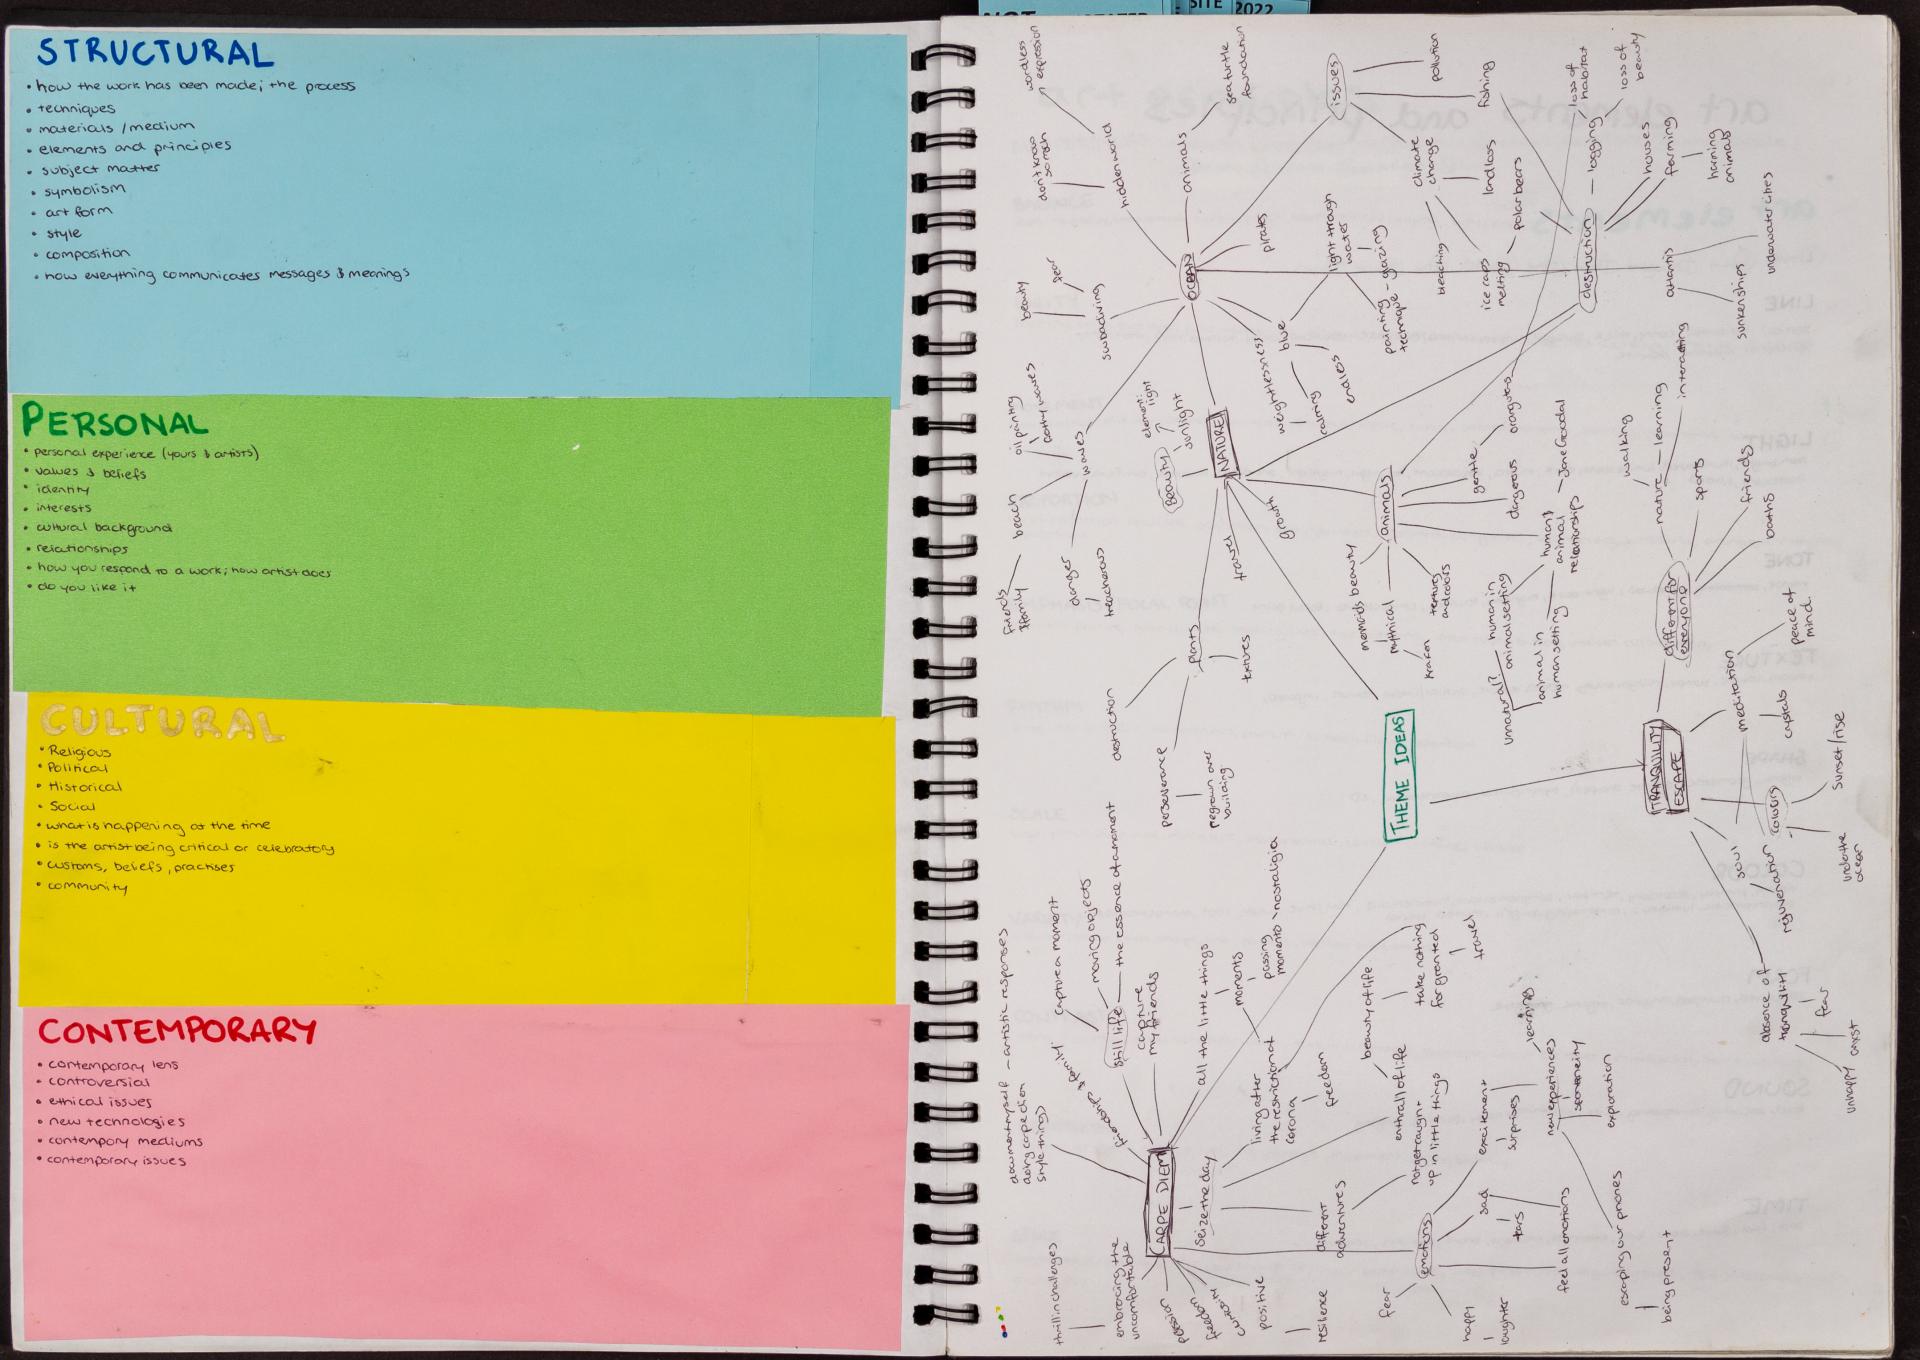 STRUCTURAL
• how the work has been made; the process
• techniques
• materials / medium
• elements and principles
• subject matter
• symbolism
• art form
• style
• composition
• how everything communicates messages & meanings
PERSONAL
• personal experience (yours & artists)
• values & beliefs
• identity
• interests
• cultural background
• relationships
• how you respond to a work; how artist does
• do you like it
CULTURAL
• Religious
• Political
• Historical
• Social
• what is happening at the time
• is the artist being critical or celebratory
• customs, beliefs, practises
• community
CONTEMPORARY
• contemporary lens
• controversial
• ethical issues
• new technologies
• contempory mediums
• contemporary issues
SITE 2022
THEME IDEAS
NATURE
Beauty
sunlight
element:
light
growth
travel
plants
textures
destruction
perseverance
regrown over
building
OCEAN
hidden world
don't know
so much
wordless
expression
animals
sea turtle
foundation
pirates
scuba diving
fear
beauty
waves
oil painting
beach
friends
& family
danger
treacherous
weightlessness
blue
calming
endless
light through
water
painting - glazing
technique
issues
pollution
fishing
climate
change
land loss
bleaching
ice caps
melting
polar bears
destruction
logging
loss of
habitat
loss of
beauty
houses
farming
harming
animals
atlantis
underwater cities
sunken ships
animals
gentle
orangutans
dangerous
human &
animal
relationships
Jane Goodal
human in
animal setting
unnatural?
animal in
human setting
textures
and colors
mythical
kraken
mermaids beauty
TRANQUILITY
ESCAPE
different for
everyone
nature - learning
walking
interacting
sports
friends
baths
meditation
peace of
mind.
crystals
colors
sunset/rise
under the
ocean
soul
rejuvenation
absence of
tranquility
fear
angst
unhappy
CARPE DIEM
Seize the day
friendships & family
document myself - artistic responses
doing carpe diem
style things)
still life - the essence of a moment
capture a moment
moving objects
capture
my friends
all the little things
moments
passing
moments - nostalgia
living after
the restriction of
corona
freedom
take nothing
for granted
travel
enthrall of life
beauty of life
not get caught
up in little things
different
adventures
emotions
excitement
surprises
new experiences
learning
spontaneity
exploration
escaping our phones
being present
sad
tears
feel all emotions
happy
laughter
fear
positive
resilience
curiosity
freedom
passion
embracing the
uncomfortable
thrill in challenges